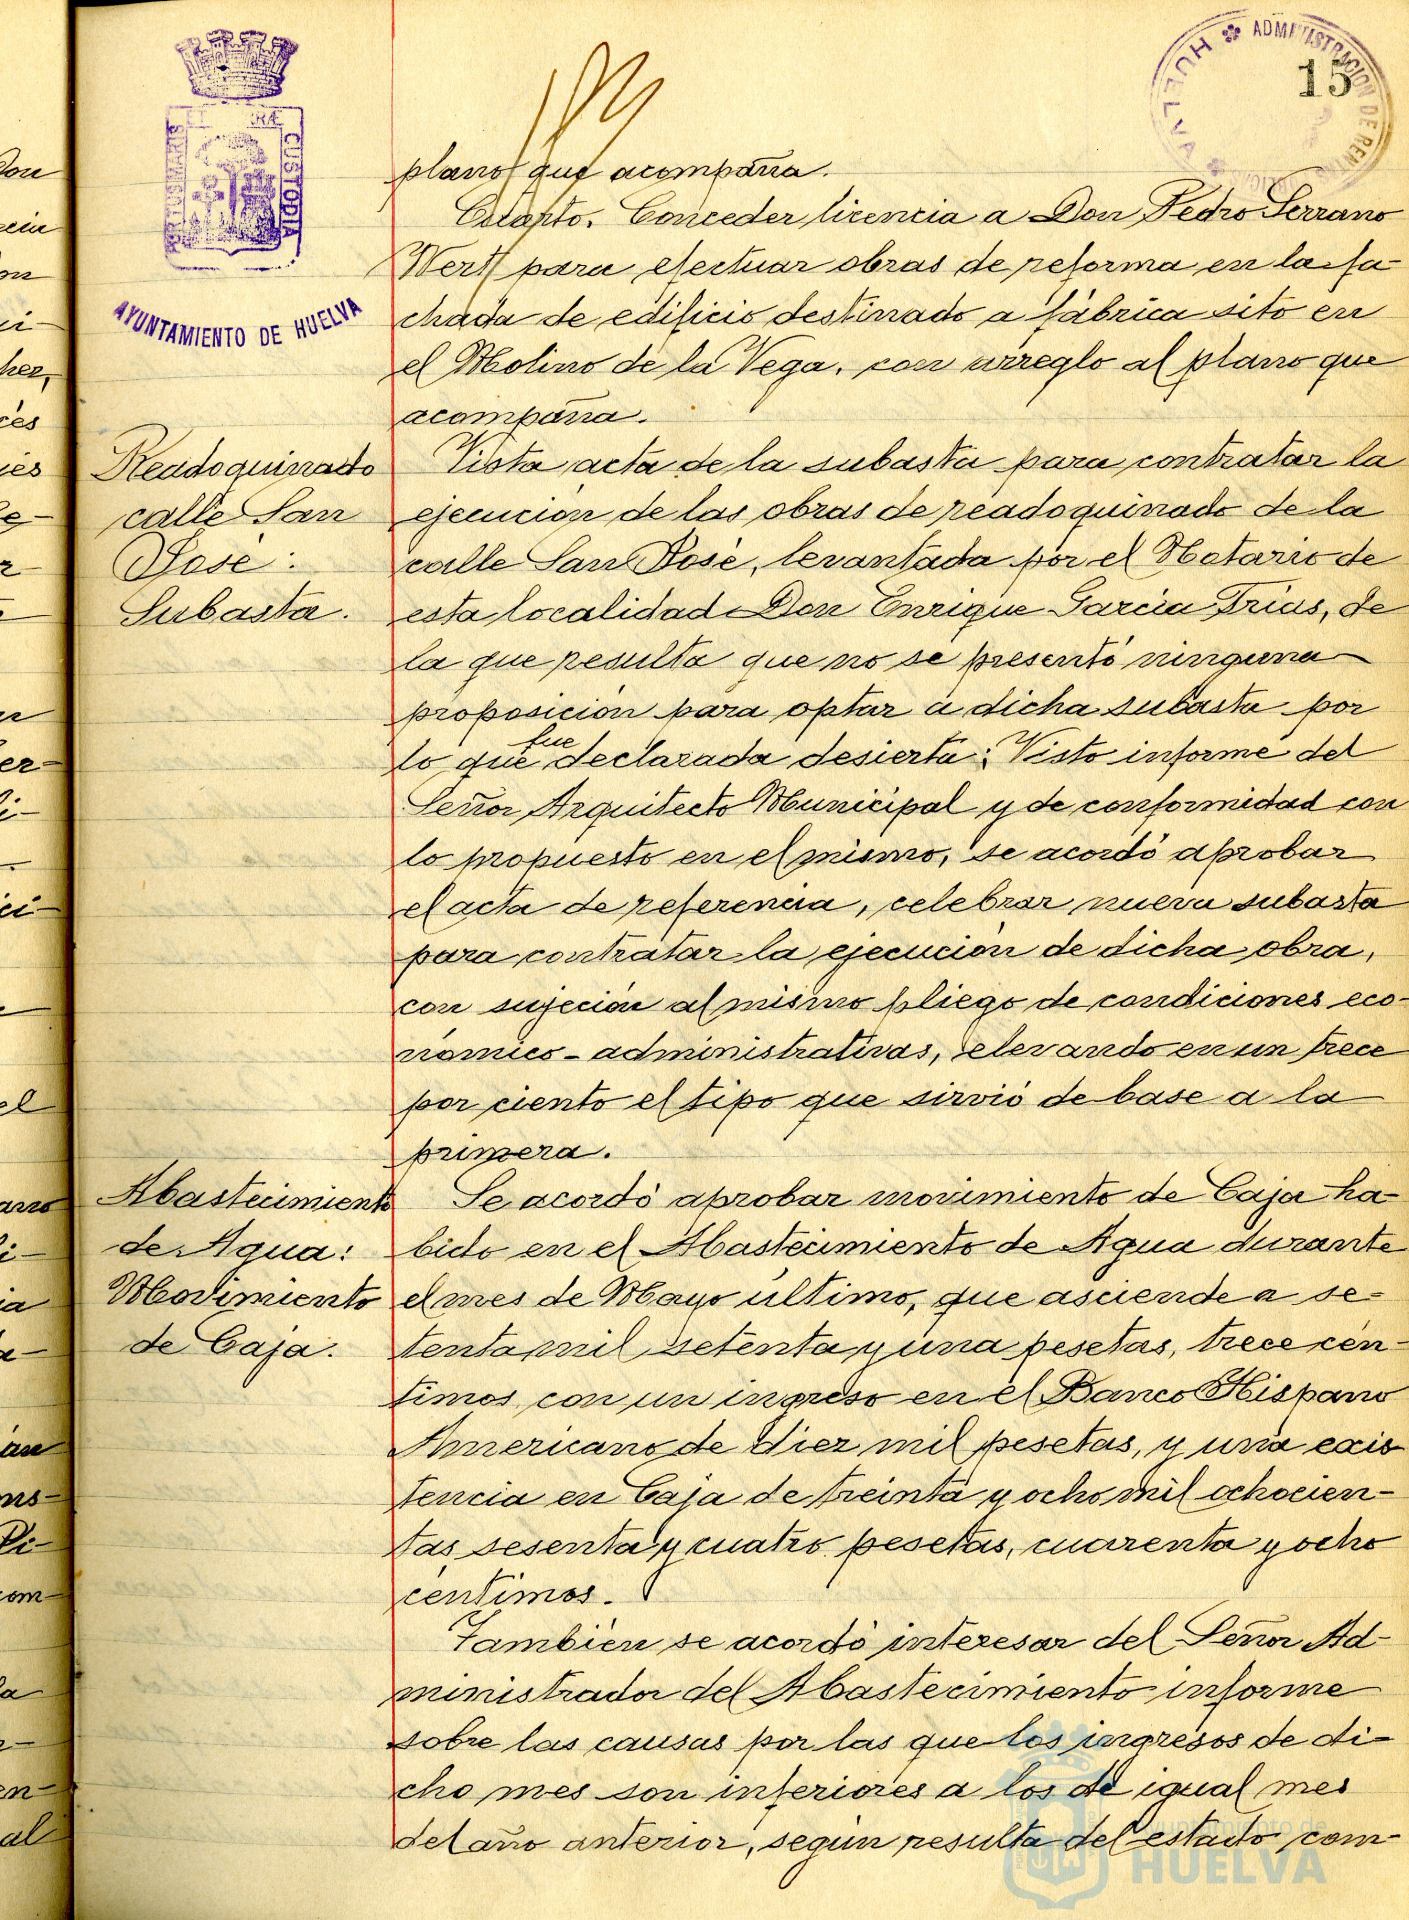 15
HUELVA ADMINISTRACION DE RENTAS PUBLICAS
PORTUS MARIS ET TERRÆ CUSTODIA
AYUNTAMIENTO DE HUELVA
plano que acompaña.
Cuarto. Conceder licencia a Don Pedro Serrano
Wert para efectuar obras de reforma en la fa-
chada de edificio destinado a fábrica sito en
el Molino de la Vega, con arreglo al plano que
acompaña.
Readoquinado
calle San
José:
Subasta.
Vista acta de la subasta para contratar la
ejecución de las obras de readoquinado de la
calle San José, levantada por el Notario de
esta localidad Don Enrique García Frías, de
la que resulta que no se presentó ninguna
proposición para optar a dicha subasta por
lo que fue declarada desierta: Visto informe del
Señor Arquitecto Municipal y de conformidad con
lo propuesto en el mismo, se acordó aprobar
el acta de referencia, celebrar nueva subasta
para contratar la ejecución de dicha obra,
con sujeción al mismo pliego de condiciones eco-
nómico-administrativas, elevando en un trece
por ciento el tipo que sirvió de base a la
primera.
Abastecimiento
de Agua:
Movimiento
de Caja.
Se acordó aprobar movimiento de Caja ha-
bido en el Abastecimiento de Agua durante
el mes de Mayo último, que asciende a se-
tenta mil setenta y una pesetas, trece cén-
timos con un ingreso en el Banco Hispano
Americano de diez mil pesetas, y una exis-
tencia en Caja de treinta y ocho mil ochocien-
tas sesenta y cuatro pesetas, cuarenta y ocho
céntimos.
También se acordó interesar del Señor Ad-
ministrador del Abastecimiento informe
sobre las causas por las que los ingresos de di-
cho mes son inferiores a los de igual mes
del año anterior, según resulta del estado com-
Ayuntamiento de
HUELVA